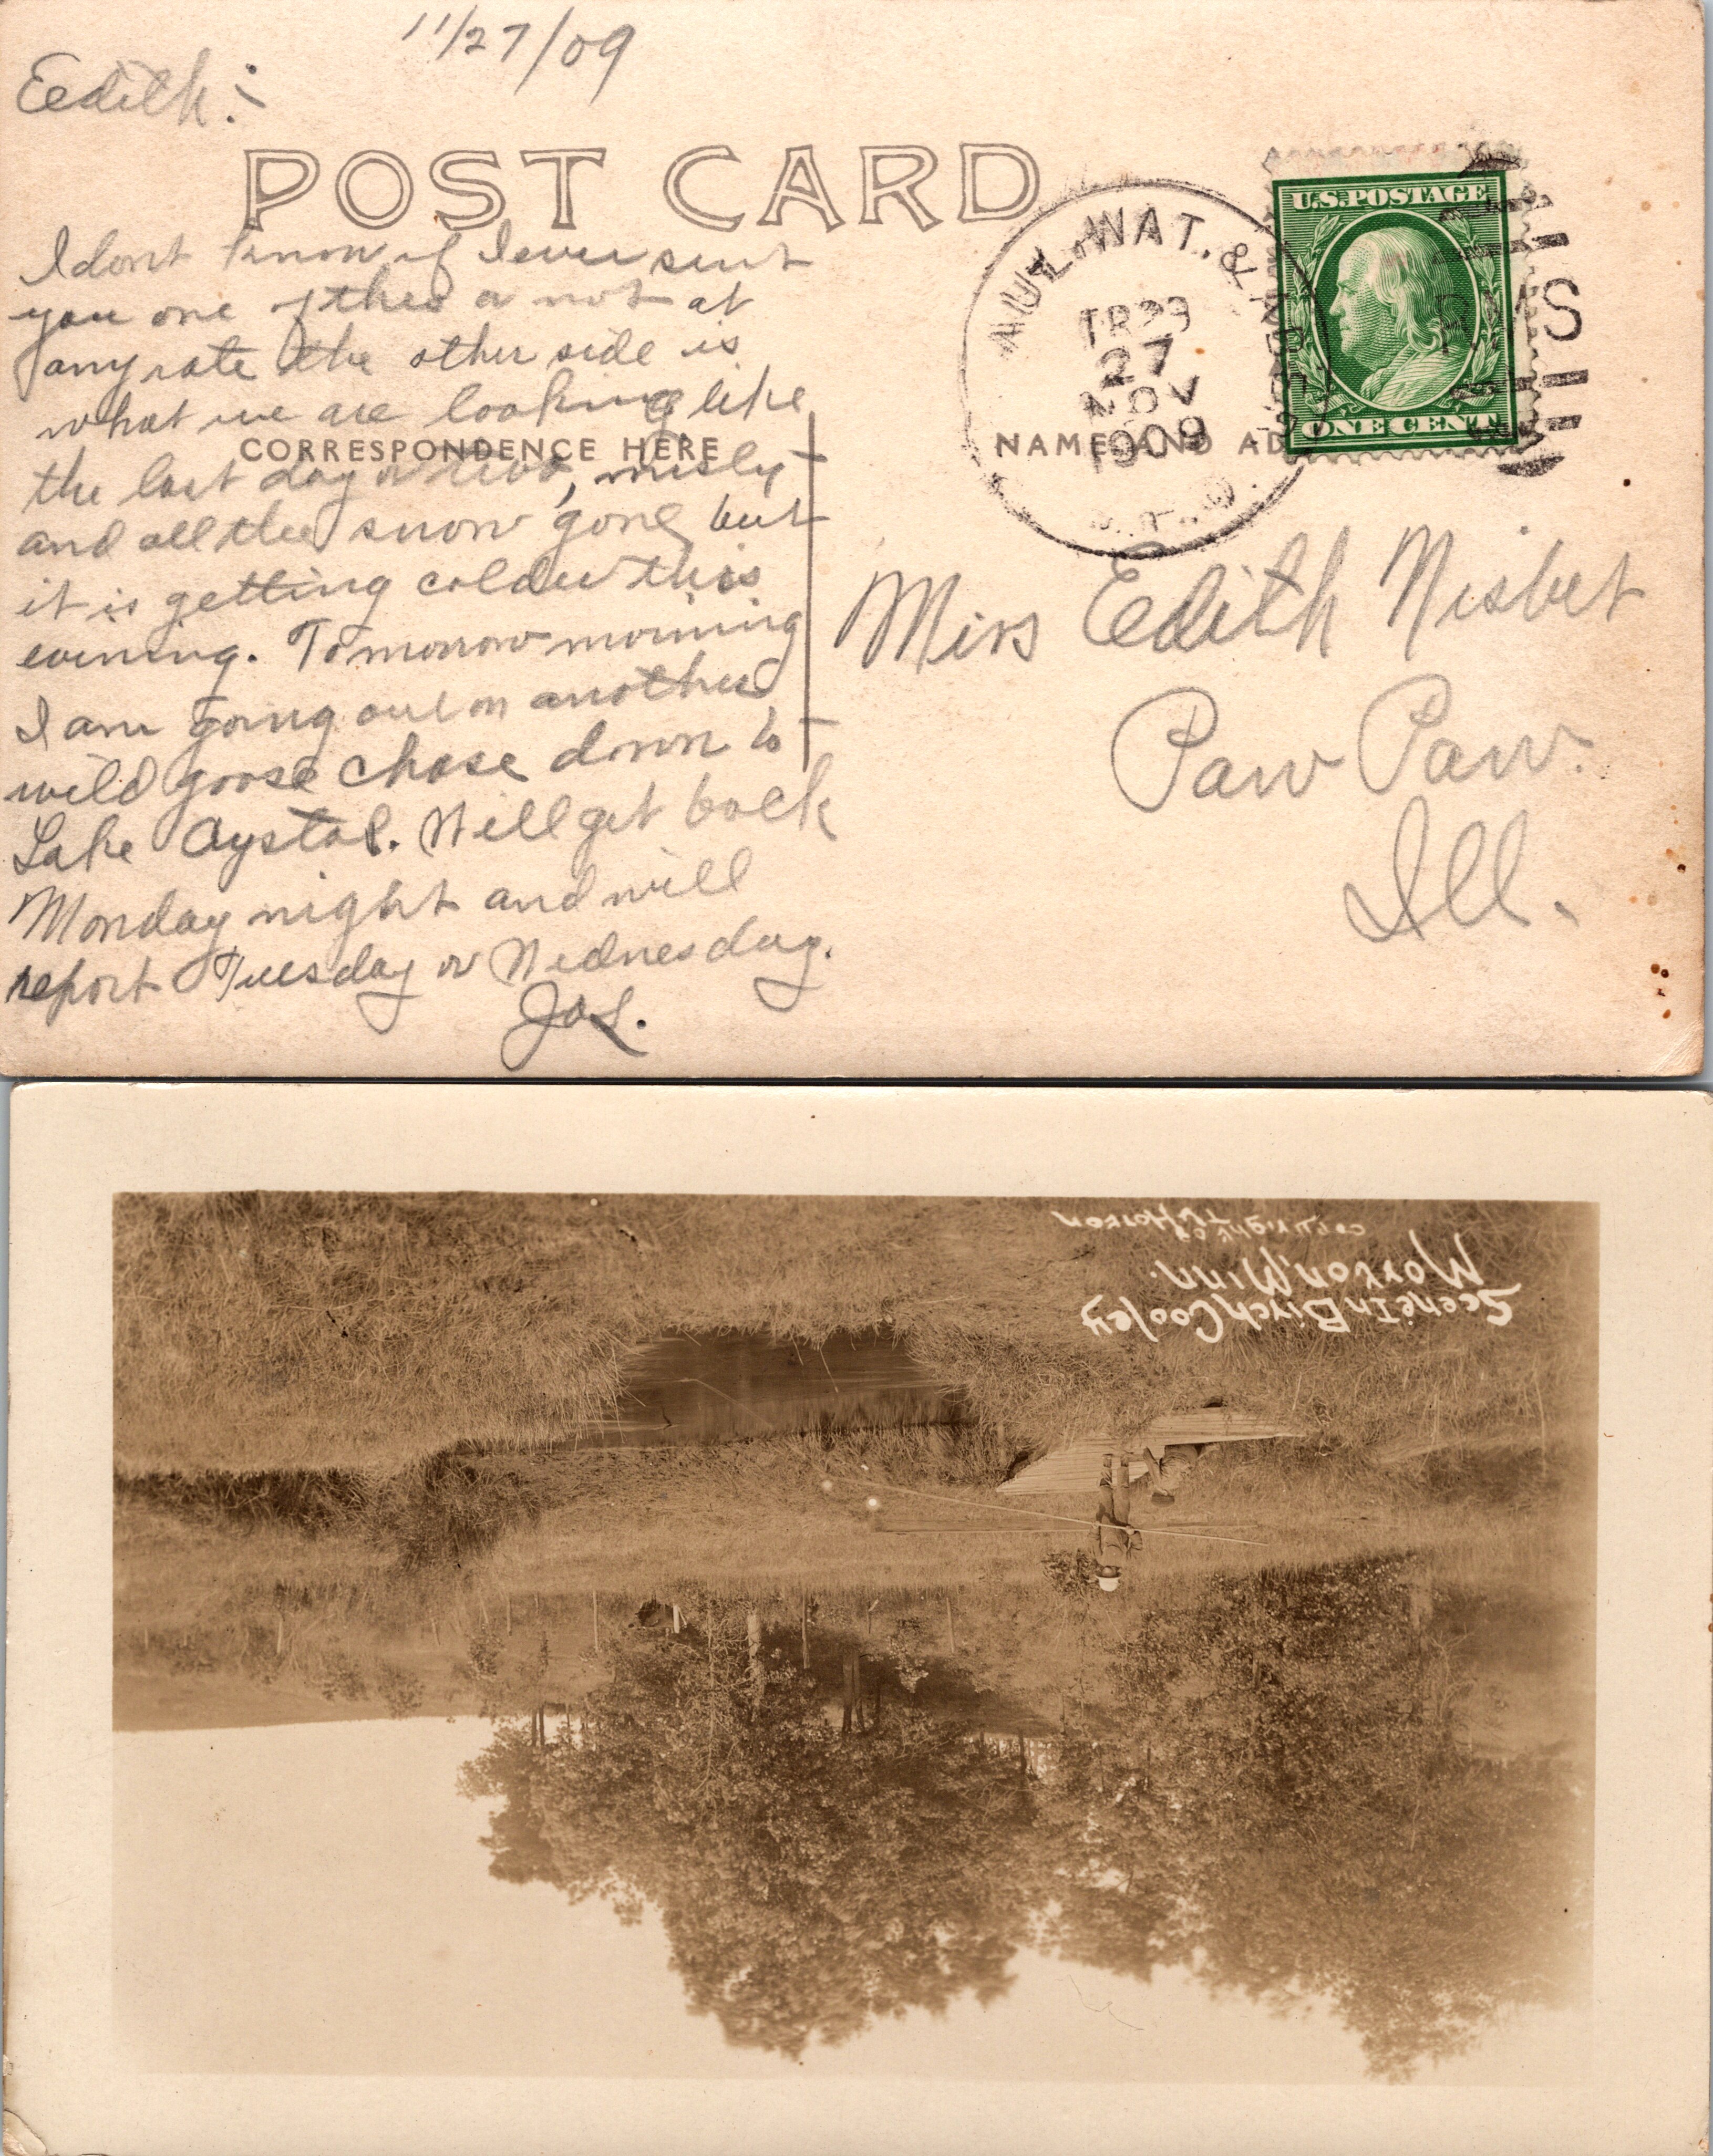 11/27/09
Eedith:-
POST CARD
I dont know if I ever sent
you one of thes or not at
any rate the other side is
what we are looking like
CORRESPONDENCE HERE
the last day or two, misly
and all the snow gone, but
it is getting colder this
evening. Tomorrow morning
I am going out on another
wild goose chase down to
Lake Crystal. Will get back
Monday night and will
report Tuesday or Wednesday.
Jas.
WAT. &
TR 29
27
NOV
1909
R.P.O.
U.S. POSTAGE
ONE CENT
RMS
NAME AND AD
Miss Eedith Nisbet
Paw Paw.
Ill.
Scene In Birch Cooley
Morton, Minn.
copyright 09